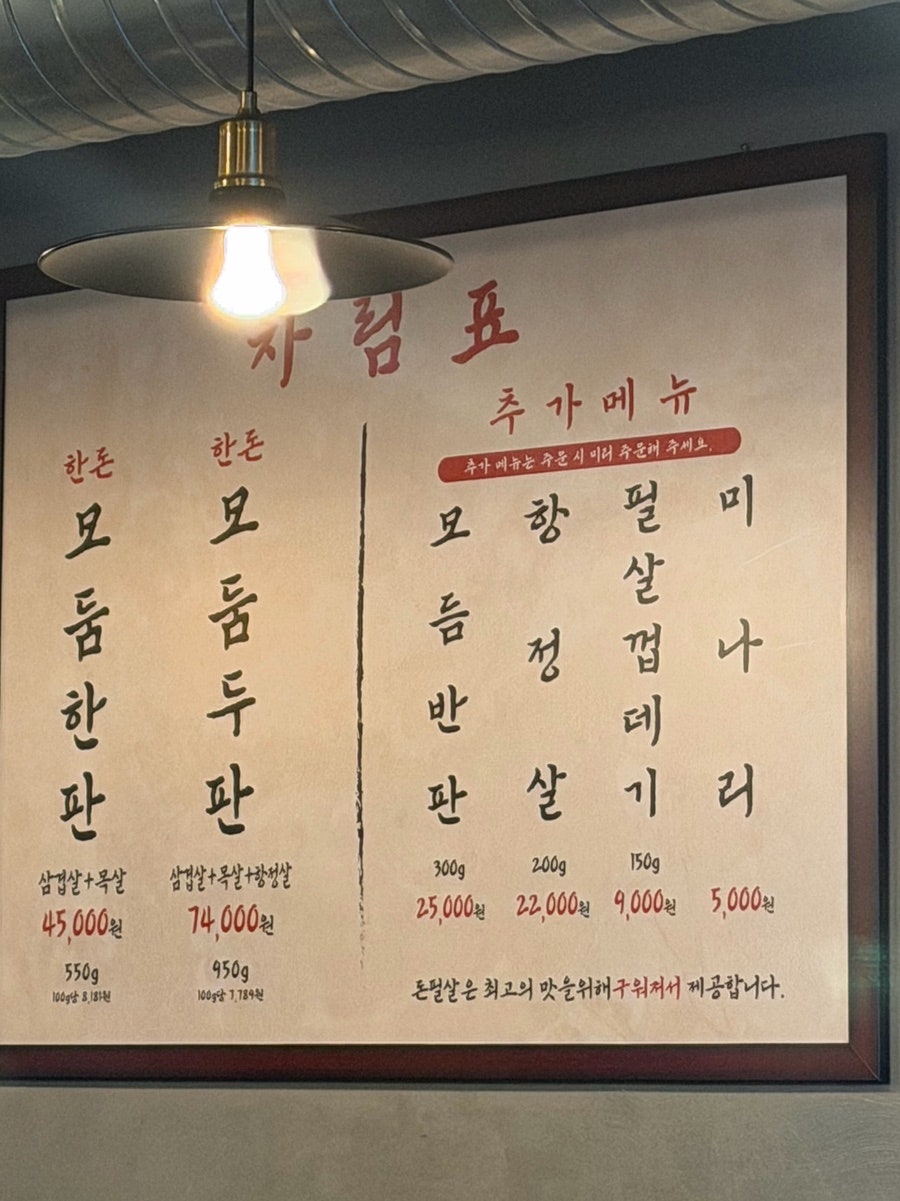 차림표
한돈
모둠한판
삼겹살+목살
45,000원
550g
100g당 8,181원
한돈
모둠두판
삼겹살+목살+항정살
74,000원
950g
100g당 7,789원
추가메뉴
추가 메뉴는 주문 시 미리 주문해 주세요.
모듬반판
300g
25,000원
항정살
200g
22,000원
필살껍데기
150g
9,000원
미나리
5,000원
돈필살은 최고의 맛을위해구워져서 제공합니다.